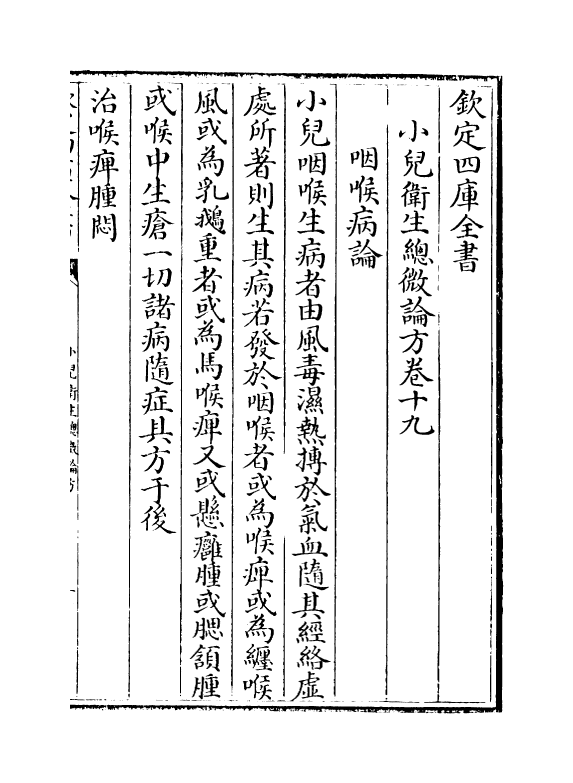 欽定四庫全書
小兒衛生總微論方卷十九
咽喉病論
小兒咽喉生病者由風毒濕熱搏於氣血隨其經絡虛
處所著則生其病若發於咽喉者或為喉痺或為纏喉
風或為乳鵝重者或為馬喉痺又或懸癰腫或腮頷腫
或喉中生瘡一切諸病隨症具方于後
治喉痺腫悶
小兒衛生總微論方